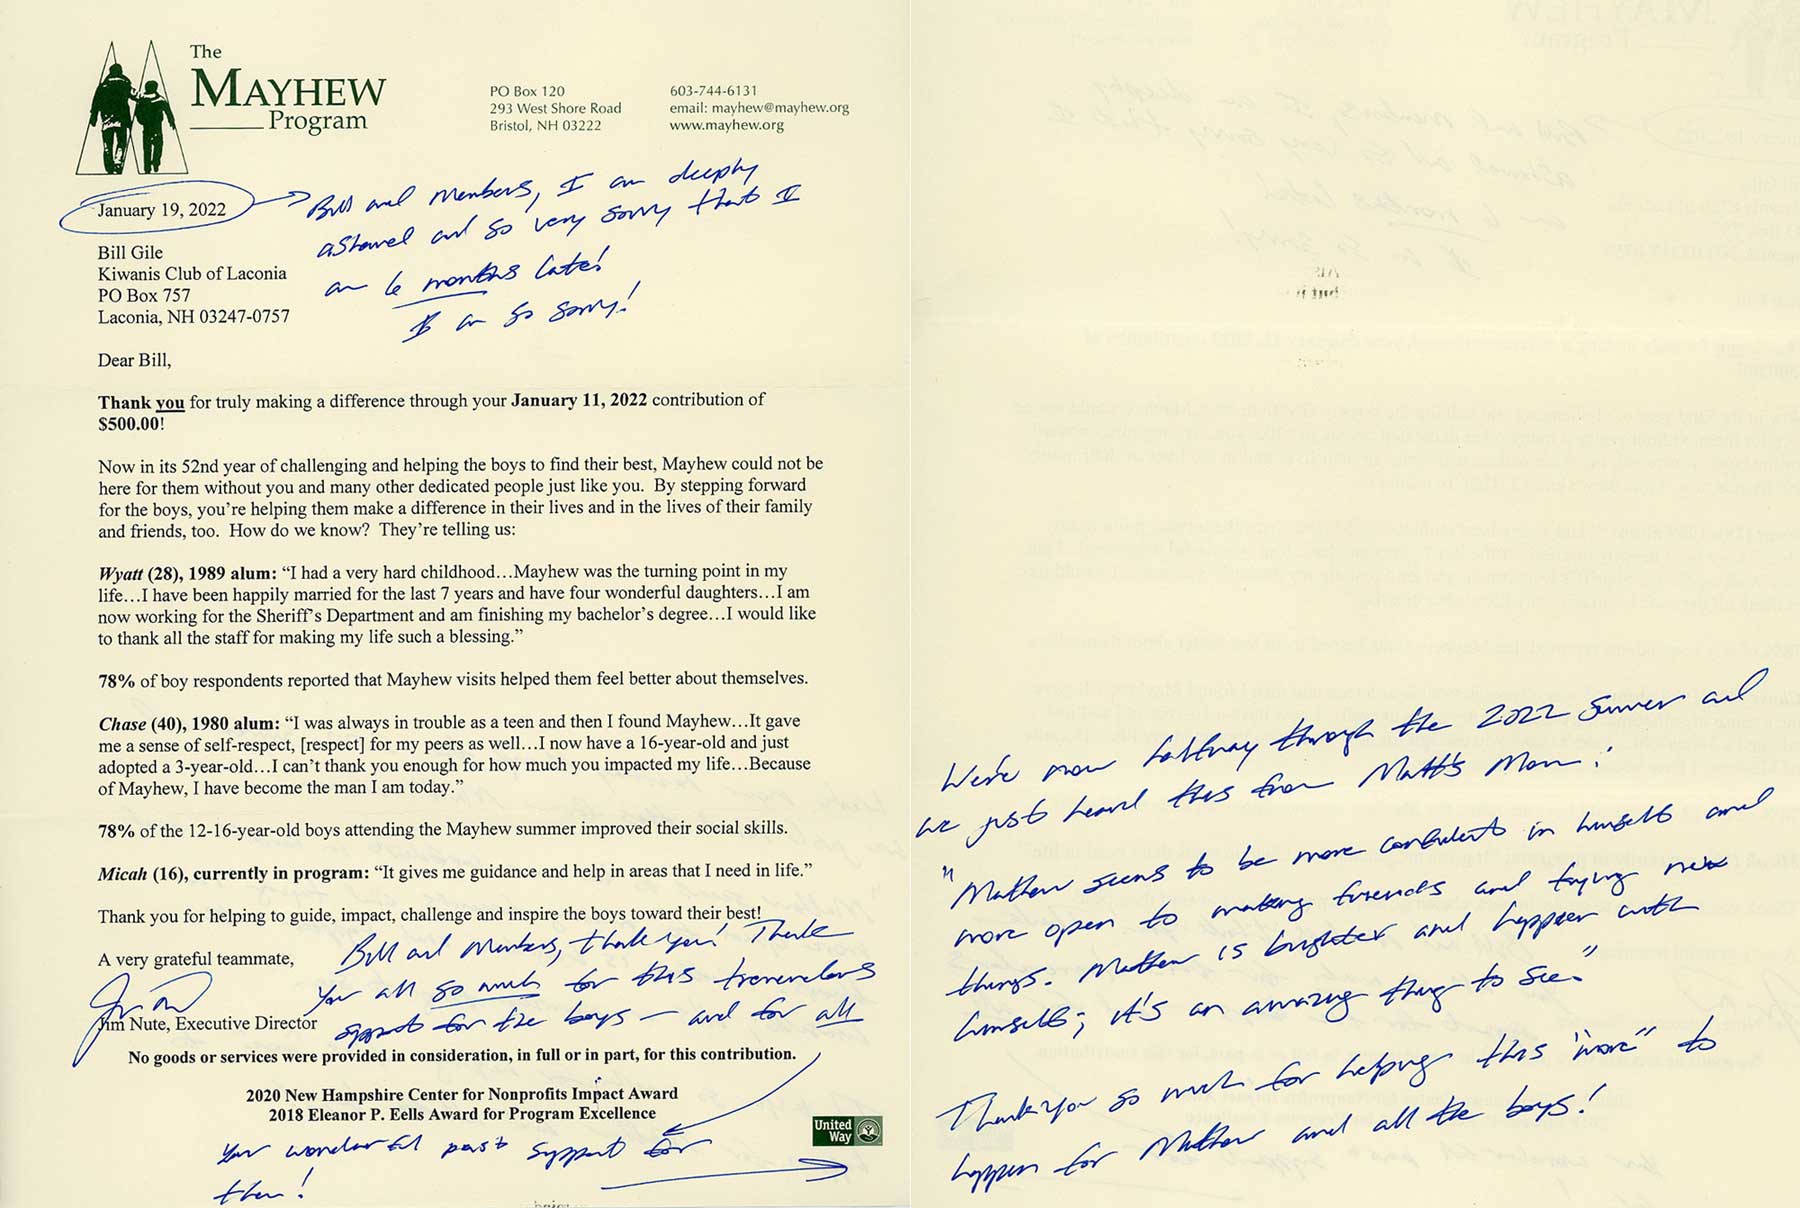 The
MAYHEW
Program
PO Box 120
293 West Shore Road
Bristol, NH 03222
603-744-6131
email: mayhew@mayhew.org
www.mayhew.org
January 19, 2022
Bill and Members, I am deeply
ashamed and so very sorry that I
am 6 months late!
I am so sorry!
Bill Gile
Kiwanis Club of Laconia
PO Box 757
Laconia, NH 03247-0757
Dear Bill,
Thank you for truly making a difference through your January 11, 2022 contribution of
$500.00!
Now in its 52nd year of challenging and helping the boys to find their best, Mayhew could not be
here for them without you and many other dedicated people just like you.  By stepping forward
for the boys, you're helping them make a difference in their lives and in the lives of their family
and friends, too.  How do we know?  They're telling us:
Wyatt (28), 1989 alum: “I had a very hard childhood…Mayhew was the turning point in my
life…I have been happily married for the last 7 years and have four wonderful daughters…I am
now working for the Sheriff's Department and am finishing my bachelor's degree…I would like
to thank all the staff for making my life such a blessing.”
78% of boy respondents reported that Mayhew visits helped them feel better about themselves.
Chase (40), 1980 alum: “I was always in trouble as a teen and then I found Mayhew…It gave
me a sense of self-respect, [respect] for my peers as well…I now have a 16-year-old and just
adopted a 3-year-old…I can't thank you enough for how much you impacted my life…Because
of Mayhew, I have become the man I am today.”
78% of the 12-16-year-old boys attending the Mayhew summer improved their social skills.
Micah (16), currently in program: “It gives me guidance and help in areas that I need in life.”
Thank you for helping to guide, impact, challenge and inspire the boys toward their best!
A very grateful teammate,
Jim Nute, Executive Director
Bill and Members, thank you! Thank
you all so much for this tremendous
support for the boys — and for all
No goods or services were provided in consideration, in full or in part, for this contribution.
2020 New Hampshire Center for Nonprofits Impact Award
2018 Eleanor P. Eells Award for Program Excellence
United
Way
your wonderful past support for
them!
We're now halfway through the 2022 Summer and
we just heard this from Matt's Mom:
"Matthew seems to be more confident in himself and
more open to making friends and trying new
things. Matthew is brighter and happier with
himself; it's an amazing thing to see."
Thank you so much for helping this "more" to
happen for Matthew and all the boys!